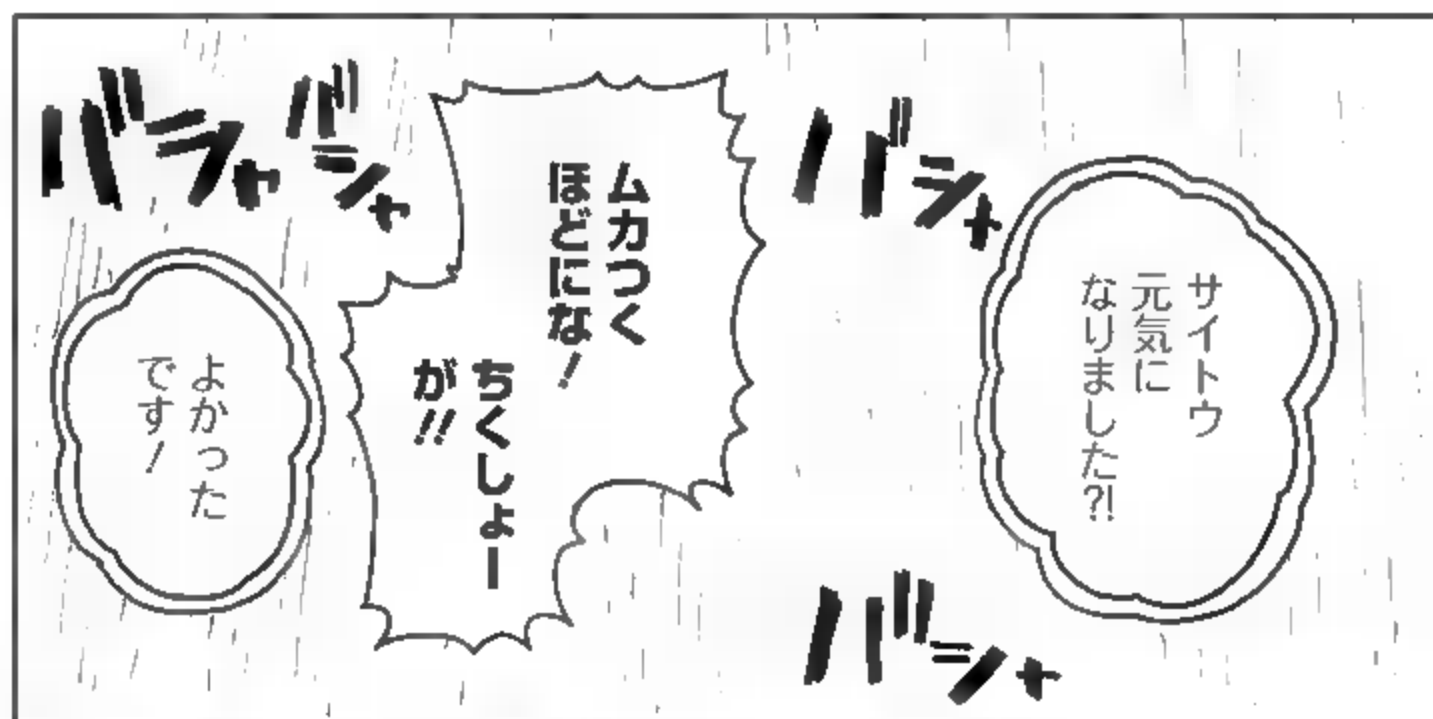 サイトウ
元気に
なりました?!
バシャ
バシャ
ムカつく
ほどにな!
ちくしょー
が!!
バシャ
バシャ
よかった
です!